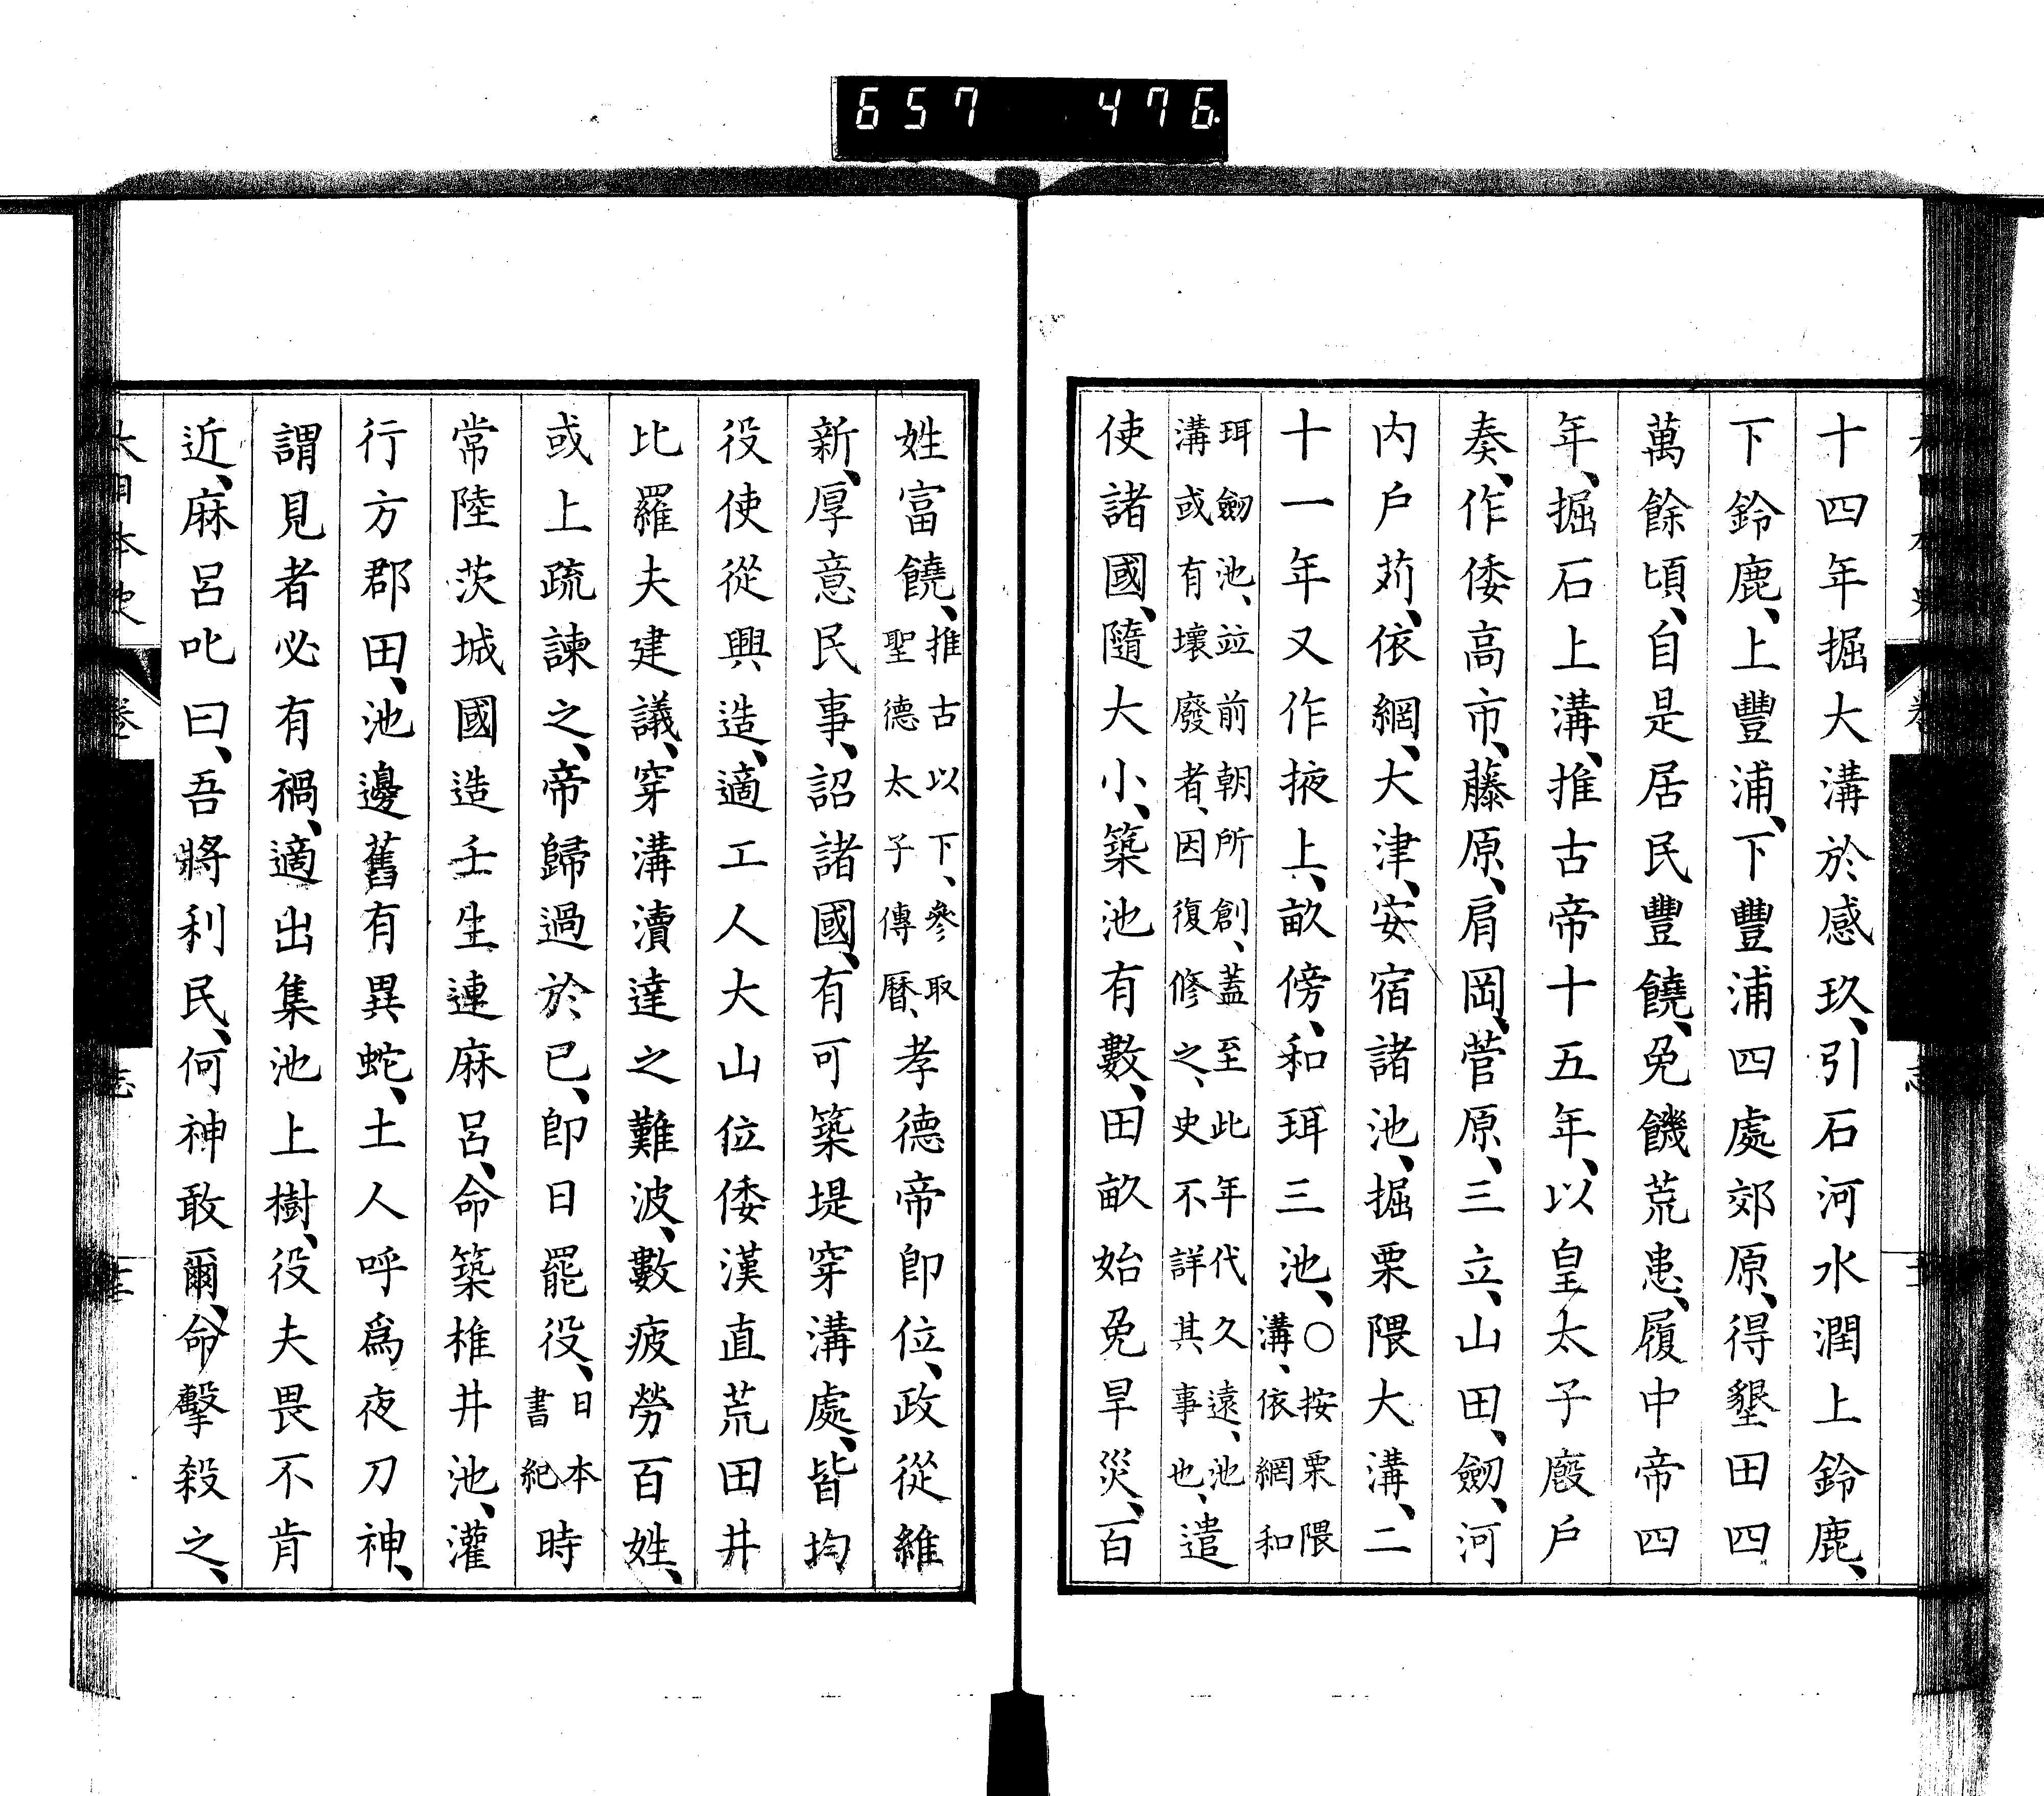 657 476
十四年掘大溝於感玖、引石河水潤上鈴鹿、
下鈴鹿、上豐浦、下豐浦四處郊原、得墾田四
萬餘頃、自是居民豐饒、免饑荒患、履中帝四
年、掘石上溝、推古帝十五年、以皇太子廐戶
奏、作倭高市、藤原、肩岡、菅原、三立、山田、劒、河
內戶苅、依網、大津、安宿諸池、掘栗隈大溝、二
十一年又作掖上、畝傍、和珥三池、○按栗隈
溝、依網和
珥劒池、竝前朝所創、蓋至此年代久遠、池
溝或有壞廢者、因復修之、史不詳其事也、遣
使諸國、隨大小、築池有數、田畝始免旱災、百
姓富饒、推古以下、參取
聖德太子傳曆、孝德帝卽位、政從維
新、厚意民事、詔諸國、有可築堤穿溝處、皆均
役使從興造、適工人大山位倭漢直荒田井
比羅夫建議、穿溝瀆達之難波、數疲勞百姓、
或上疏諫之、帝歸過於已、卽日罷役、日本
書紀時
常陸茨城國造壬生連麻呂、命築椎井池、灌
行方郡田、池邊舊有異蛇、土人呼爲夜刀神、
謂見者必有禍、適出集池上樹、役夫畏不肯
近、麻呂叱曰、吾將利民、何神敢爾、命擊殺之、
大日本史 卷 志